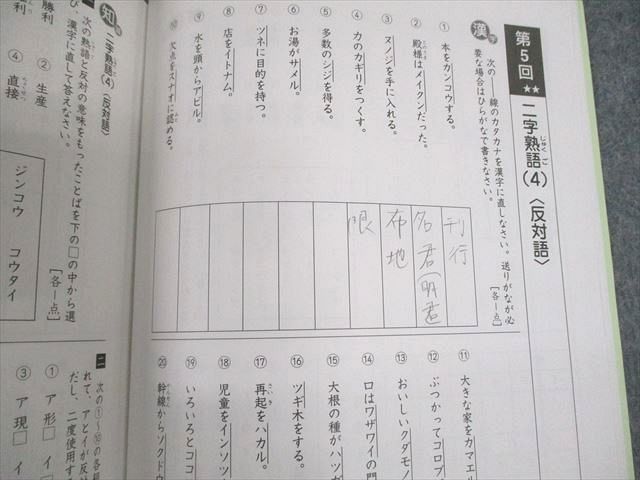 第5回
★★
二字熟語(4)〈反対語〉
じゅくご
漢字
次の――線のカタカナを漢字に直しなさい。送りがなが必
要な場合はひらがなで書きなさい。
[各1点]
① 本をカンコウする。
② 殿様はメイクンだった。
③ ヌノジを手に入れる。
④ 力のカギリをつくす。
⑤ 多数のシジを得る。
⑥ お湯がサメル。
⑦ ツネに目的を持つ。
⑧ 店をイトナム。
⑨ 水を頭からアビル。
⑩ 欠点をスナオに認める。
刊行
名君(明君
布地
限
⑪ 大きな家をカマエル
⑫ ぶつかってコロブ
⑬ おいしいクダモノ
⑭ 口はワザワイの門
⑮ 大根の種がハツガ
⑯ ツギ木をする。
⑰ 再起をハカル。
さいき
⑱ 児童をインソツ
⑲ いろいろとココ
⑳ 幹線からソクドウ
知
二字熟語(4)〈反対語〉
次の熟語と反対の意味をもったことばを下の□の中から選
び、漢字に直して答えなさい。
[各1点]
② 生産
④ 直接
勝利
ジンコウ コウタイ
二 次の①〜⑩の各組
れて、アとイが反対
だし、二度使用する
① ア 形□ イ
③ ア 現□ イ